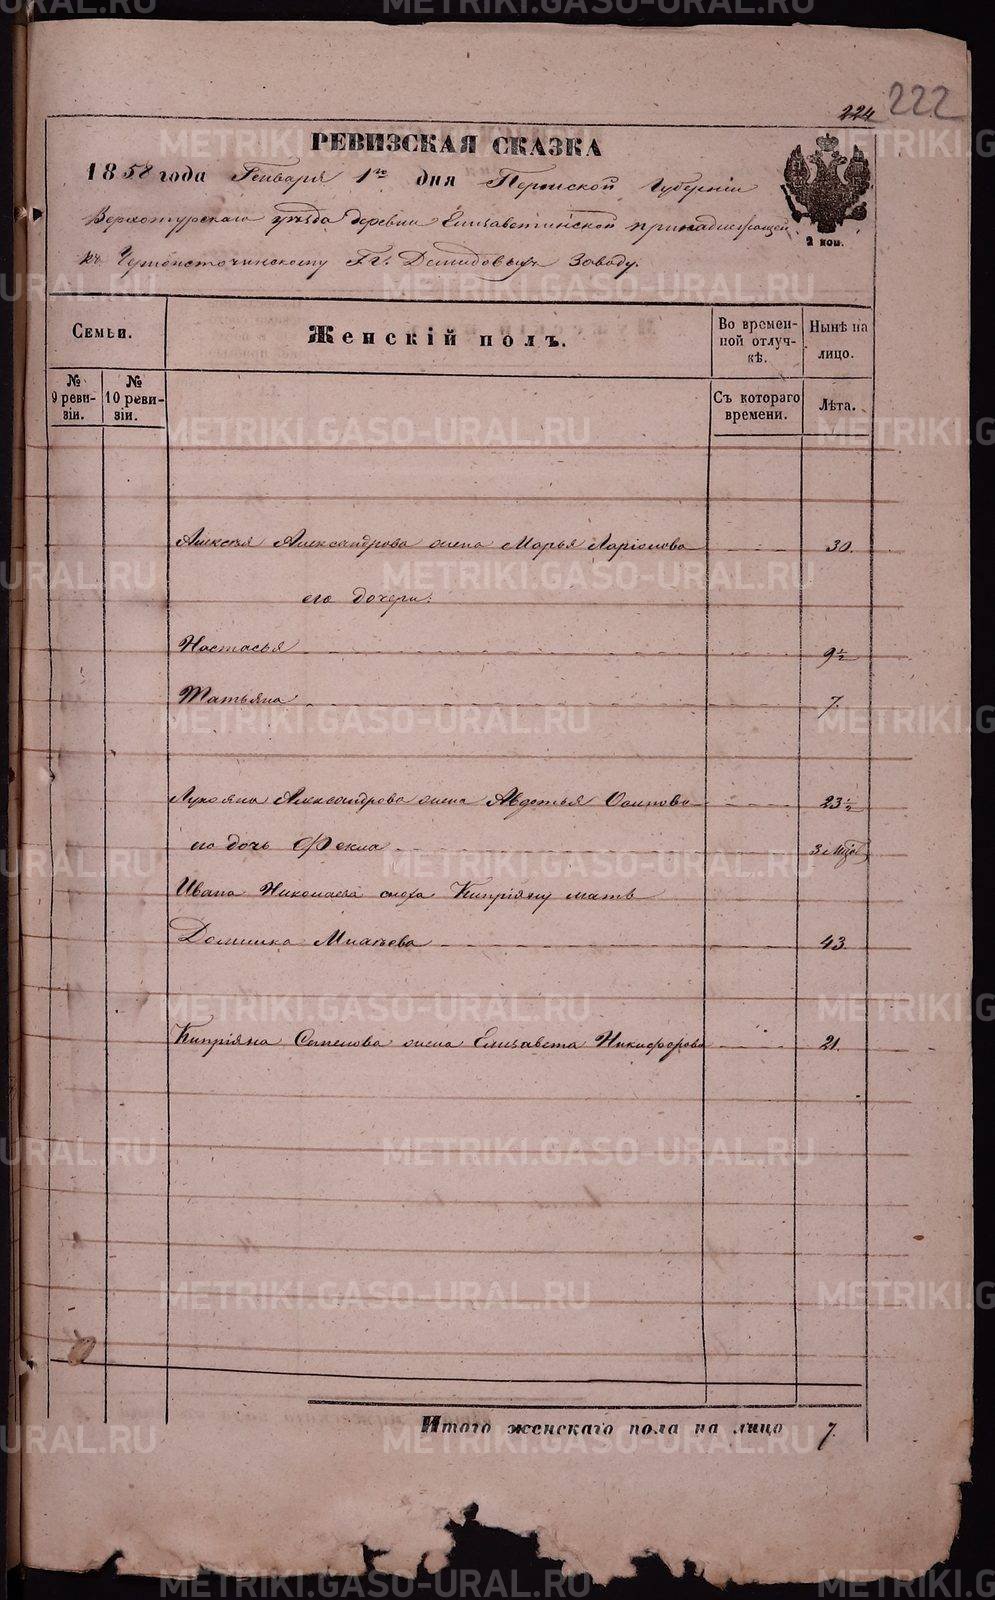 224 222
РЕВИЗСКАЯ СКАЗКА
1858 года Генваря 1го дня Пермской Губерніи
Верхотурскаго уѣзда деревни Елизаветинской принадлежащей
къ Черноисточинскому Гг. Демидовыхъ Заводу.
2 коп.
Семьи.
Женскій полъ.
Во времен-
ной отлуч-
кѣ.
Нынѣ на
лицо.
№
9 реви-
зіи.
№
10 реви-
зіи.
Съ котораго
времени.
Лѣта.
Алексѣя Александрова жена Марья Ларіонова 30.
его дочери:
Настасья 9½
Татьяна 7.
Лукояна Александрова жена Авдотья Осипова 23½
его дочь Фекла 3 мѣс
Ивана Николаева сноха Кипріяну мать
Домника 43.
Кипріяна Семенова жена Елизавета Никифорова 21.
Итого женскаго пола на лицо 7.
METRIKI.GASO-URAL.RU